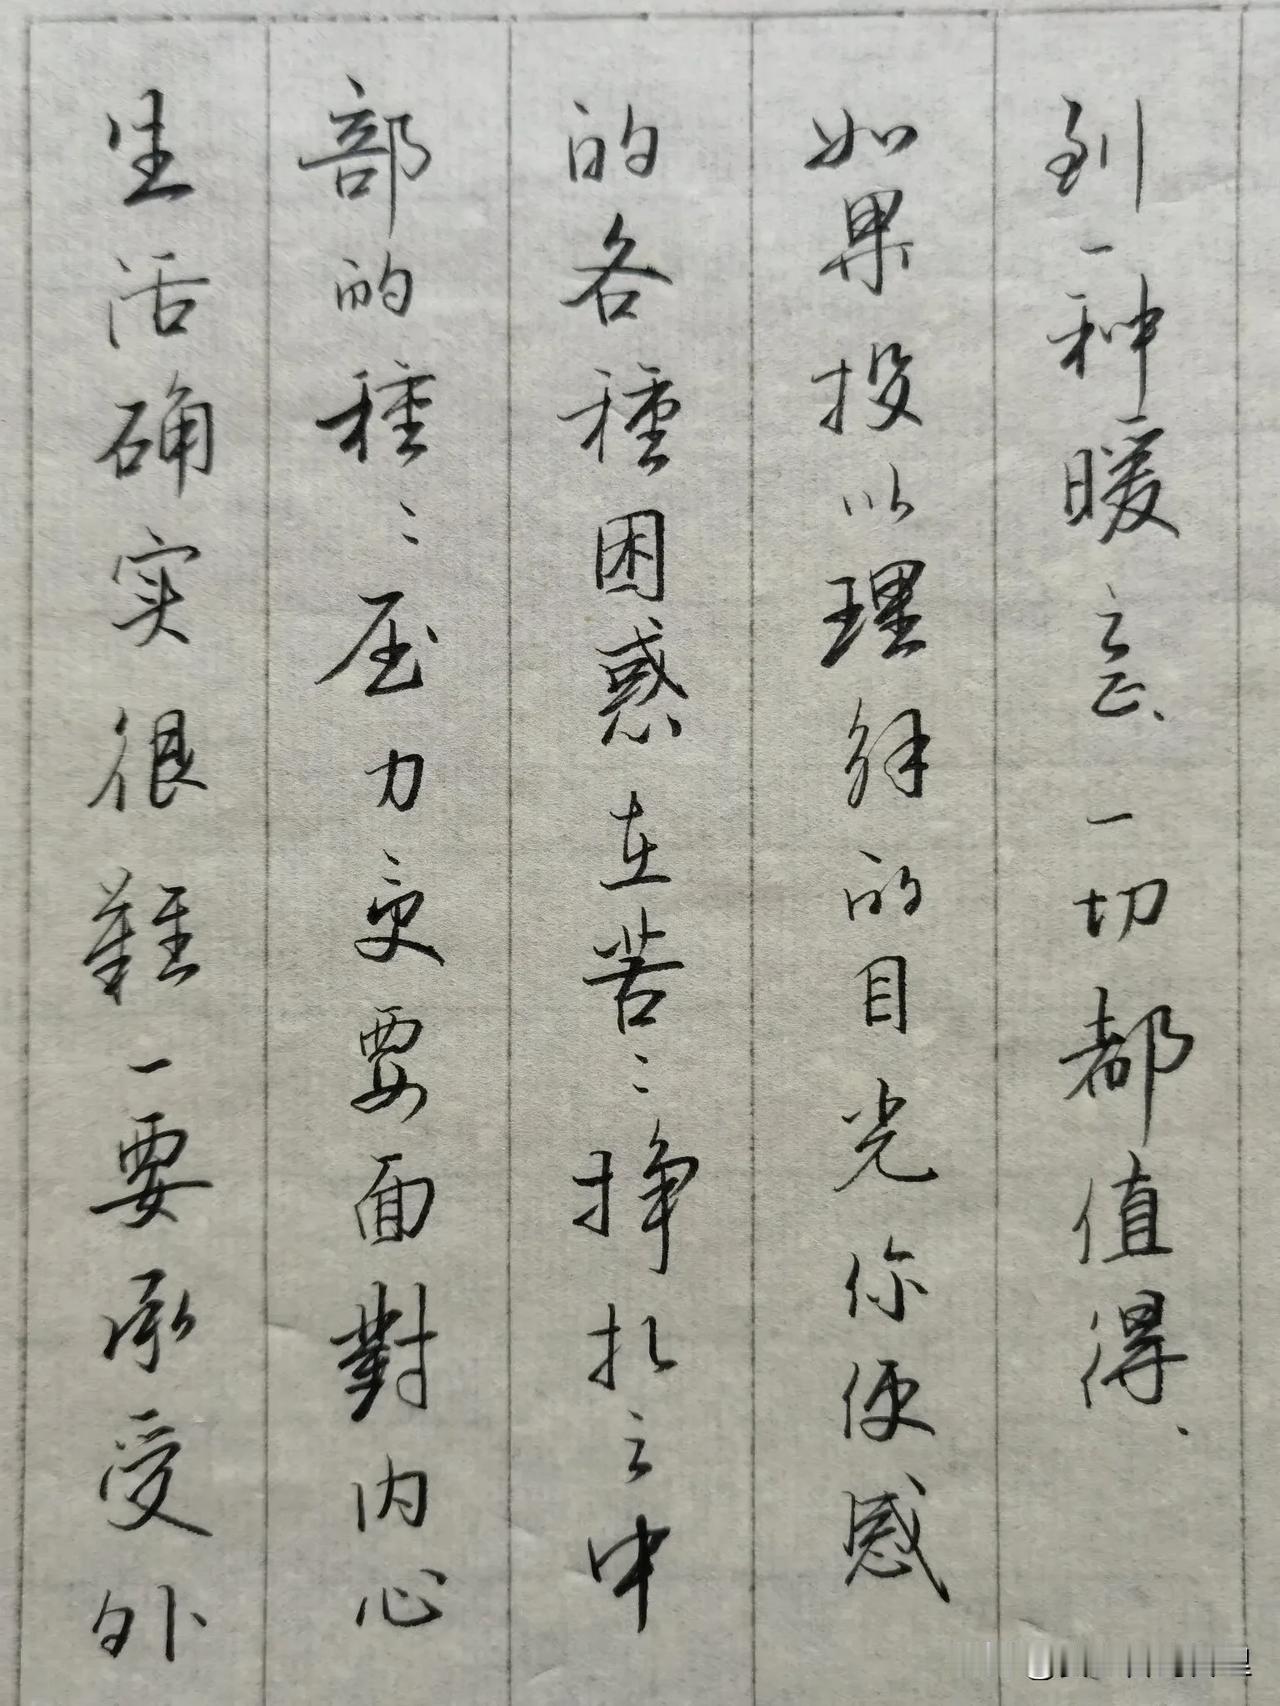 生活确实很難一要承受外
部的種〻压力更要面對内心
的各種困惑在苦〻挣扎之中
如果投以理解的目光你便感
到一种暖意、一切都值得、